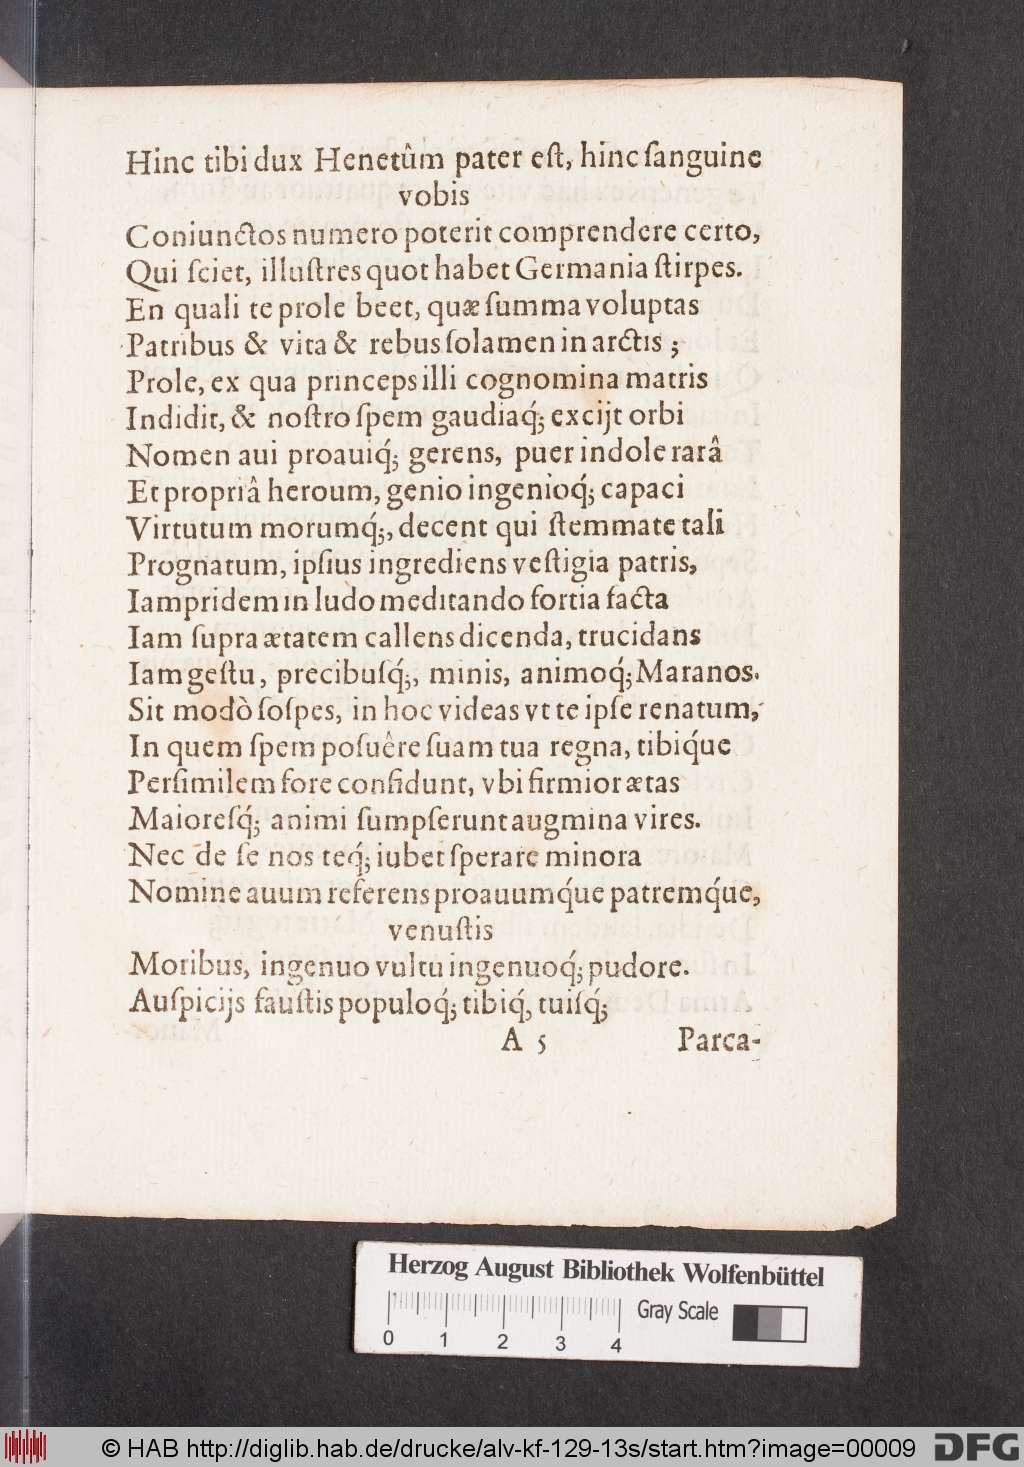 Hinc tibi dux Henetûm pater eſt, hinc ſanguine
vobis
Coniunctos numero poterit comprendere certo,
Qui ſciet, illuſtres quot habet Germania ſtirpes.
En quali te prole beet, quæ ſumma voluptas
Patribus & vita & rebus ſolamen in arctis ;
Prole, ex qua princeps illi cognomina matris
Indidit, & noſtro ſpem gaudiaq́; excijt orbi
Nomen aui proauiq́; gerens, puer indole rarâ
Et propriâ heroum, genio ingenioq́; capaci
Virtutum morumq́;, decent qui ſtemmate tali
Prognatum, ipſius ingrediens veſtigia patris,
Iampridem in ludo meditando fortia facta
Iam ſupra ætatem callens dicenda, trucidans
Iam geſtu, precibuſq́;, minis, animoq́; Maranos.
Sit modò ſoſpes, in hoc videas vt te ipſe renatum,
In quem ſpem poſuêre ſuam tua regna, tibiq́ue
Perſimilem fore confidunt, vbi firmior ætas
Maioreſq́; animi ſumpſerunt augmina vires.
Nec de ſe nos teq́; iubet ſperare minora
Nomine auum referens proauumq́ue patremq́ue,
venuſtis
Moribus, ingenuo vultu ingenuoq́; pudore.
Auſpicijs fauſtis populoq́; tibiq́, tuiſq́;
A 5 Parca-
Herzog August Bibliothek Wolfenbüttel
Gray Scale
0 1 2 3 4
© HAB http://diglib.hab.de/drucke/alv-kf-129-13s/start.htm?image=00009
DFG